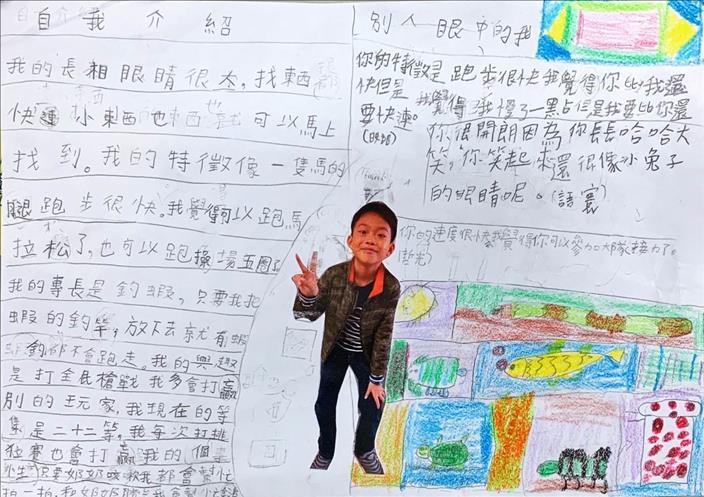 自我介紹
我的長相眼睛很大，找東西
快速小東西也可以馬上
找到。我的特徵像一隻馬的
腿跑步很快。我覺得可以跑馬
拉松了，也可以跑操場五圈了
我的專長是釣蝦，只要我把
蝦的釣竿，放下去就有蝦
蝦釣都不會跑走。我的興趣
是打全民槍戰我多會打贏
別的玩家，我現在的等
集是二十二等，我每次打排
位賽也會打贏我的個
小生只要奶奶咳嗽我都會幫忙
拍一拍和奶奶
別人眼中的我
你的特徵是跑步很快我覺得你比我還
快但是我覺得我慢了一點點但是我要比你還
要快速。
你很開朗因為你長長哈哈大
笑，你笑起來還很像小兔子
的眼睛呢。(語寰)
你的速度很快我覺得你可以參加大隊接力了。